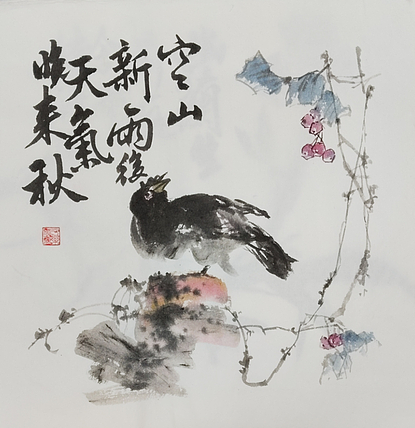 空山
新雨後
天氣
晚來秋